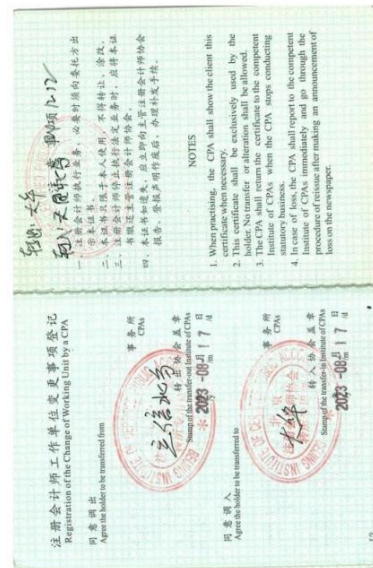 注册会计师工作单位变更事项登记
Registration of the Change of Working Unit by a CPA
同意调出
Agree the holder to be transferred from
立信北分
事务所
CPAs
转出协会盖章
Stamp of the transfer-out Institute of CPAs
2023-08月17日
同意调入
Agree the holder to be transferred to
大华
事务所
CPAs
转入协会盖章
Stamp of the transfer-in Institute of CPAs
2023-08月17日
一、注册会计师执行业务，必要时须向委托方出
示本证书。
二、本证书只限于本人使用，不得转让、涂改。
三、注册会计师停止执行法定业务时，应将本证
书缴还主管注册会计师协会。
四、本证书如遗失，应立即向主管注册会计师协会
报告，登报声明作废后，办理补发手续。
NOTES
1. When practising, the CPA shall show the client this
certificate when necessary.
2. This certificate shall be exclusively used by the
holder. No transfer or alteration shall be allowed.
3. The CPA shall return the certificate to the competent
Institute of CPAs when the CPA stops conducting
statutory business.
4. In case of loss, the CPA shall report to the competent
Institute of CPAs immediately and go through the
procedure of reissue after making an announcement of
loss on the newspaper.